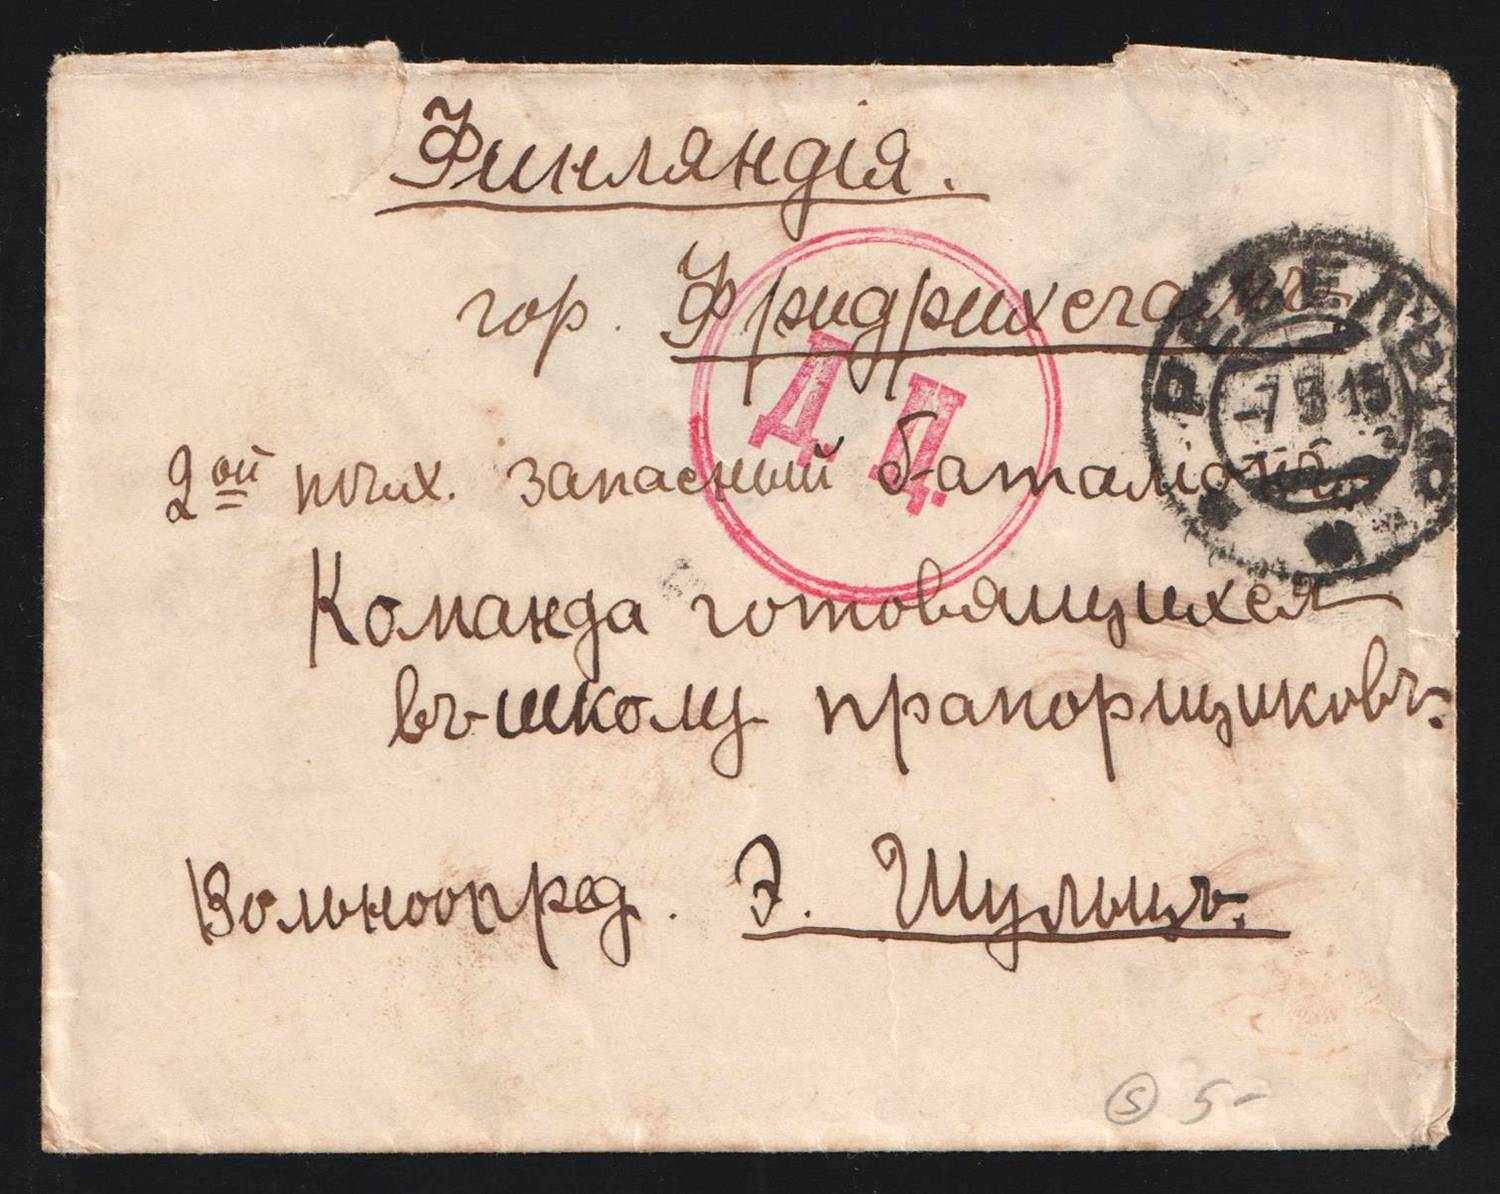 Финляндія.
гор. Фридрихсгамъ
Д. Ц.
РЕВЕЛЬ
-7 3 15
2ой пѣх. запасный баталіонъ
Команда готовящихся
въ школу прапорщиковъ.
Вольноопред. Э. Шульцъ.
S 5-